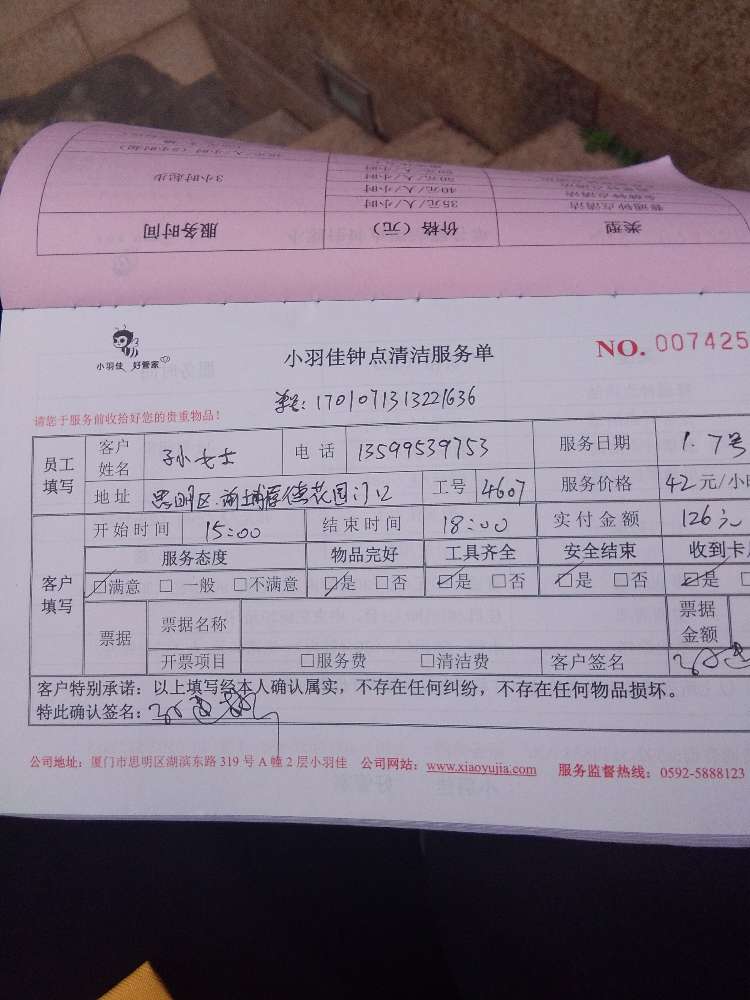 类型 价格（元） 服务时间
普通钟点清洁 35元/人/小时 3小时起步
40元/人/小时
50元/人/小时
小羽佳 好管家
小羽佳钟点清洁服务单
NO. 007425
单号:1701071313221636
请您于服务前收拾好您的贵重物品！
员工填写 客户姓名 孙女士 电话 13599539753 服务日期 1.7号
地址 思明区 莆埔厚德花园门口 工号 4607 服务价格 42元/小时
客户填写 开始时间 15:00 结束时间 18:00 实付金额 126元
服务态度 物品完好 工具齐全 安全结束 收到卡
☑满意 □一般 □不满意 ☑是 □否 ☑是 □否 ☑是 □否 ☑是 □
票据 票据名称 票据金额
开票项目 □服务费 □清洁费 客户签名
客户特别承诺：以上填写经本人确认属实，不存在任何纠纷，不存在任何物品损坏。
特此确认签名：
公司地址：厦门市思明区湖滨东路 319 号 A 幢 2 层小羽佳 公司网站：www.xiaoyujia.com 服务监督热线：0592-5888123